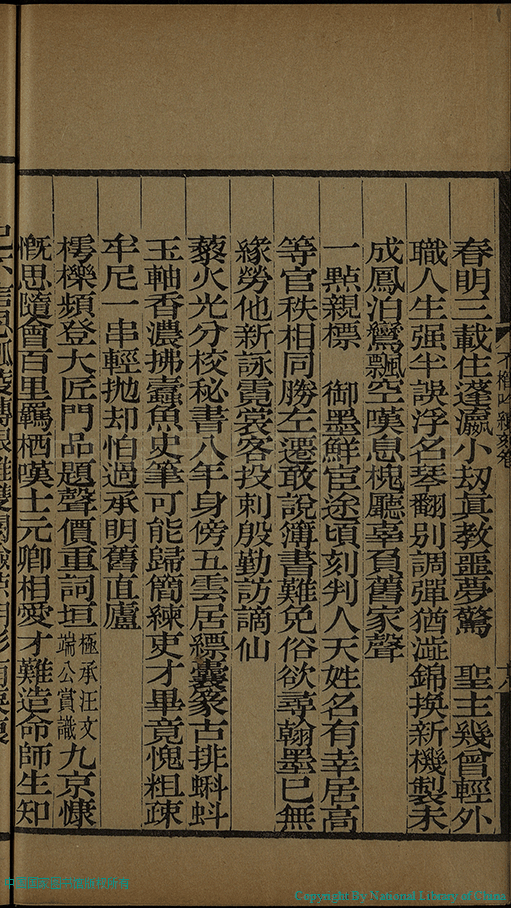 春明三載住蓬瀛小刧眞教噩夢驚　聖主幾曾輕外
職人生强半誤浮名琴翻別調彈猶澁錦換新機製未
成鳳泊鸞飄空嘆息槐廳辜負舊家聲
一點親標　御墨鮮宦途頃刻判人天姓名有幸居高
等官秩相同勝左遷敢說簿書難免俗欲尋翰墨已無
緣勞他新詠霓裳客投刺殷勤訪謫仙
藜火光分校秘書八年身傍五雲居縹囊篆古排蝌蚪
玉軸香濃拂蠹魚史筆可能歸簡練吏才畢竟愧粗疎
牟尼一串輕抛却怕過承明舊直廬
樗櫟頻登大匠門品題聲價重詞垣極承汪文端公賞識九京慷
慨思隨會百里羈栖嘆士元卿相愛才難造命師生知
Copyright By National Library of China